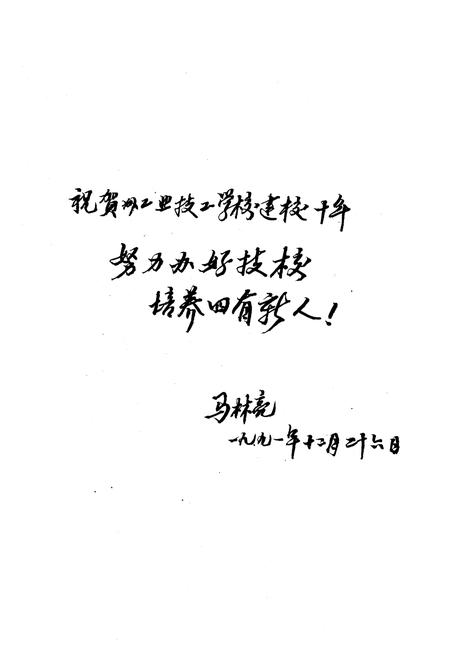 祝贺州工业技工学校建校十年
努力办好技校
培养四有新人!
马林亮
一九九一年十二月二十六日